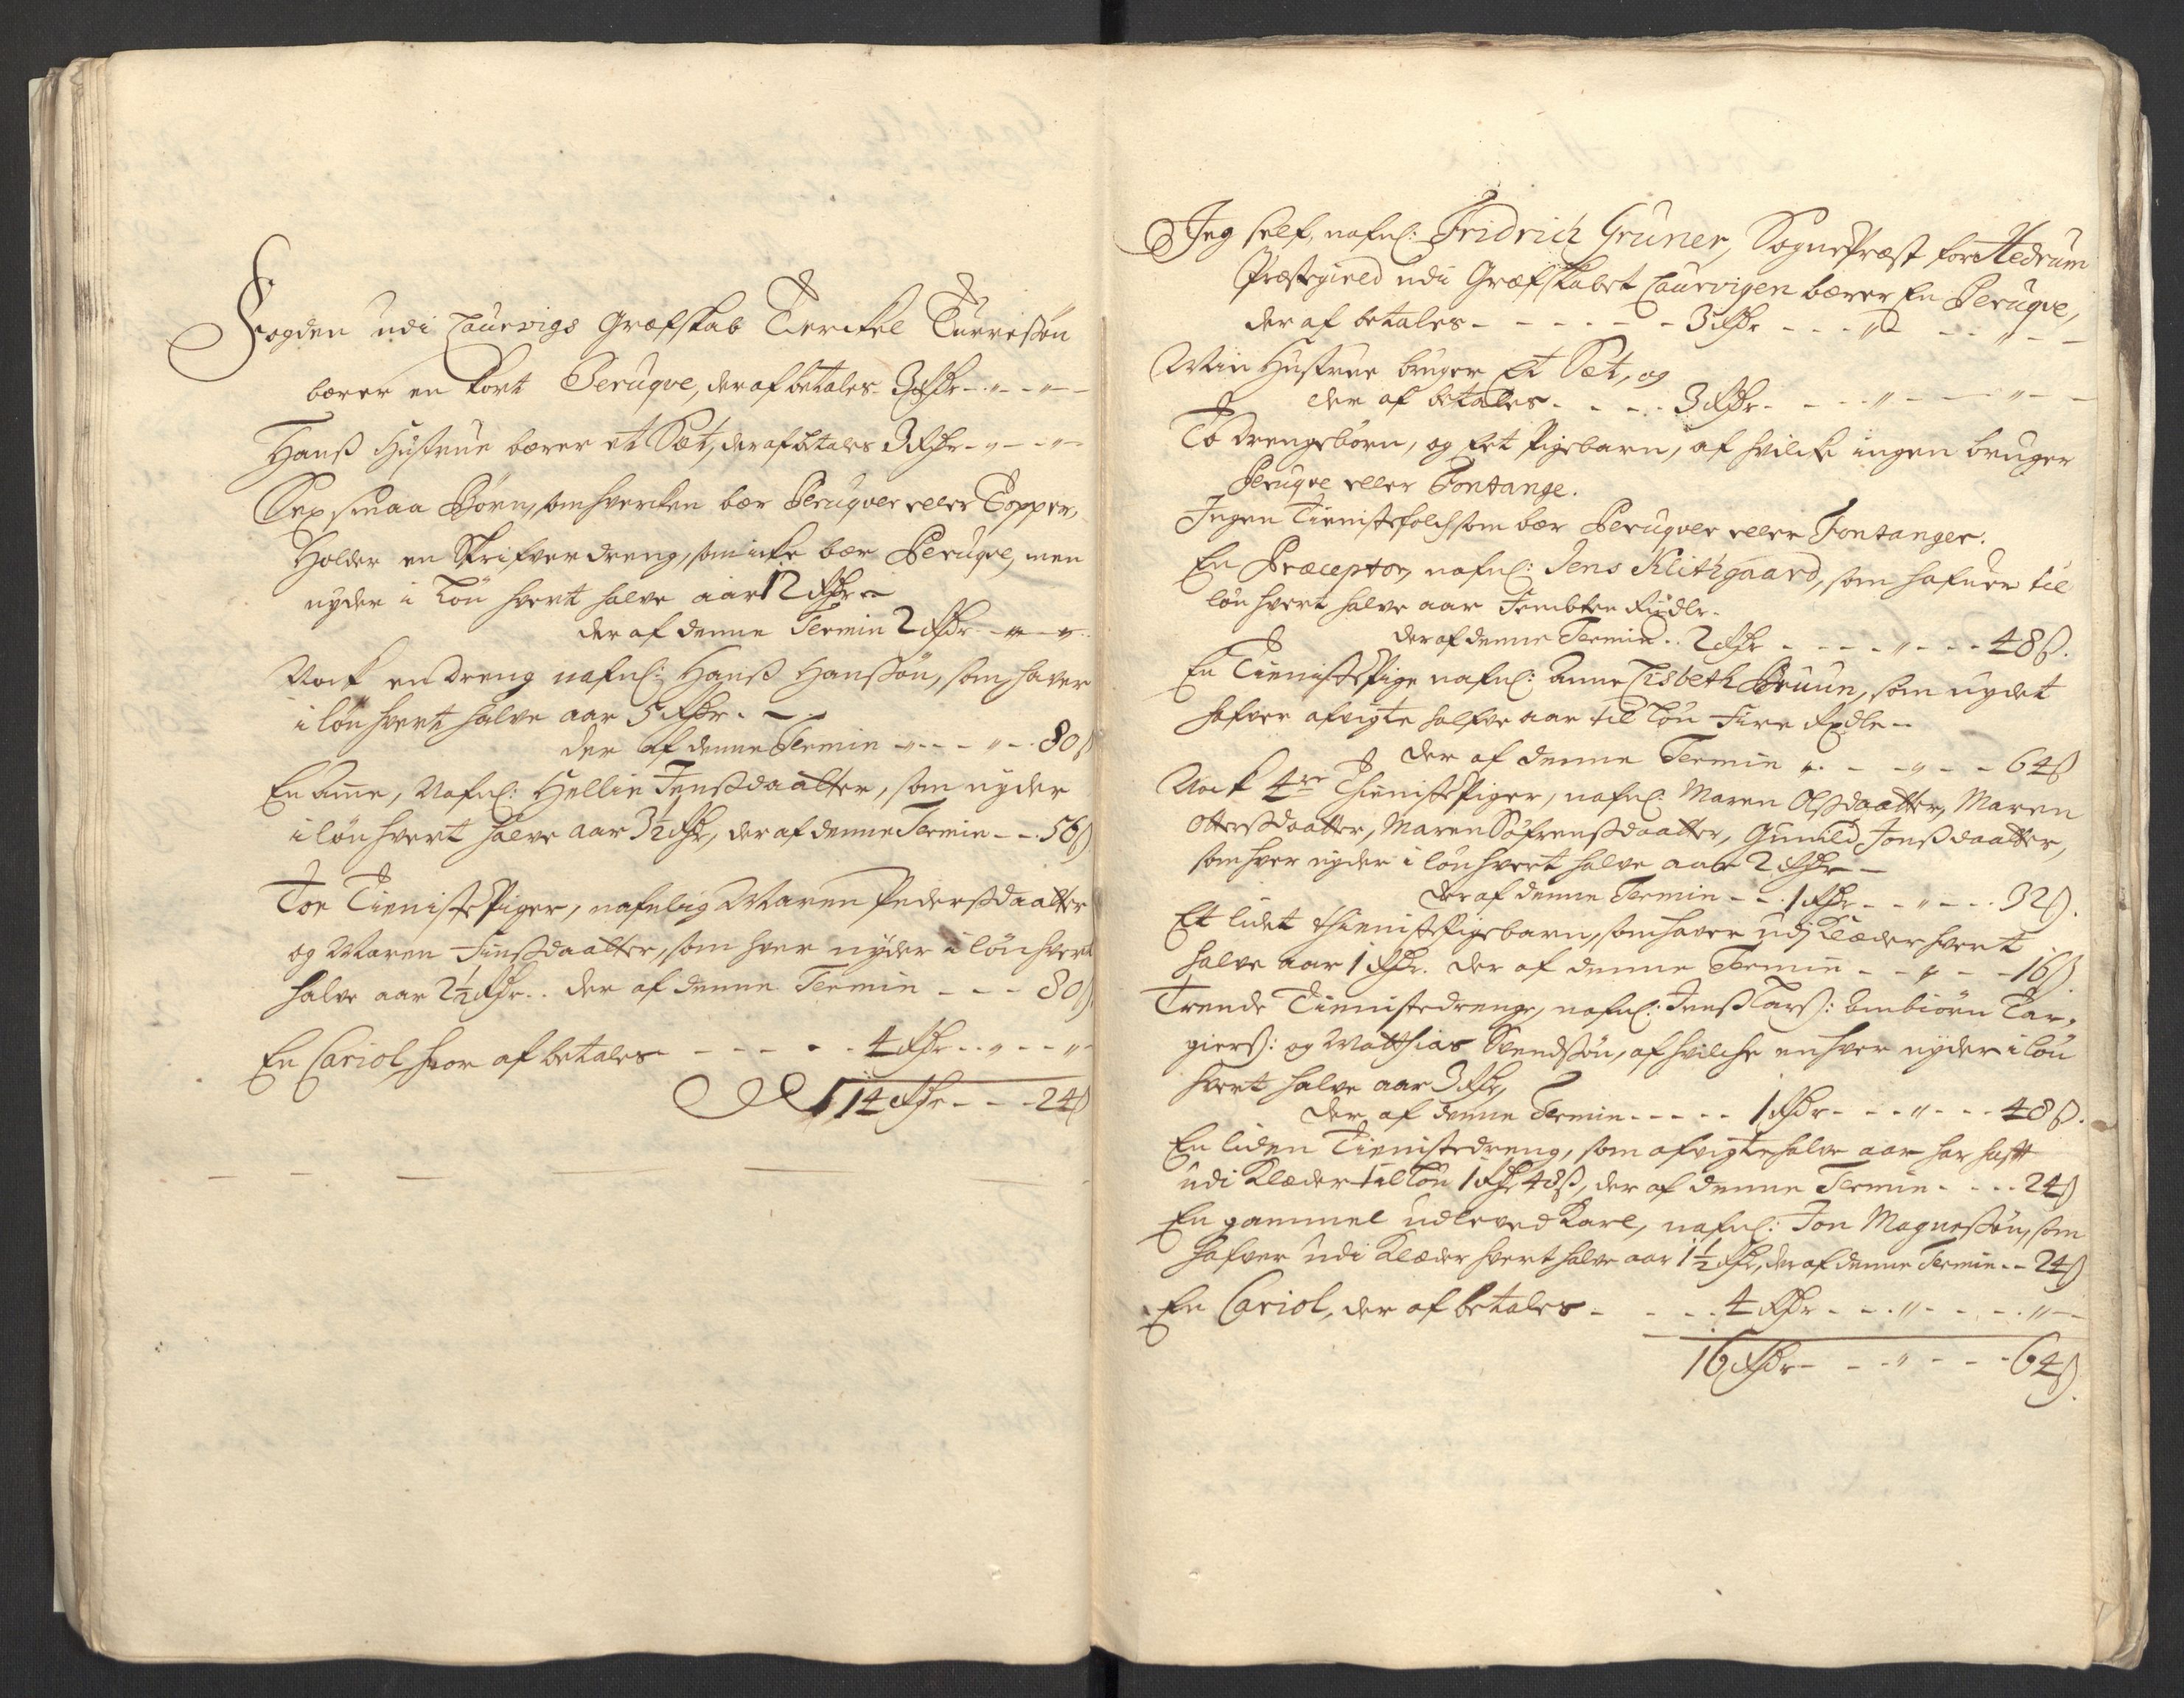 Fogden udi Laurvigs Grefskab Tierckel Turresøn
bærer en kort Peruqve, der af betales - 3 Rdr - " - "
Hanß Hustrue bærer et Sæt, der af betales 3 Rdr - " - "
Sex smaa Børn, som hverken bær Peruqver eller Topper,
Holder en Skrifver dreng, som icke bær Peruqve, men
nyder i Løn hvert halve aar 12 Rdr -
der af denne Termin 2 Rdr - " - "
Nock en dreng nafnl: Hanß Hanssøn, som haver
i løn hvert halve aar 5 Rdr. -
der af denne Termin - " - - " - 80 ß
En Amme, Nafnl: Hellie Jenßdaatter, som nyder
i løn hvert halve aar 3½ Rdr, der af denne Termin - - 56 ß
Toe Tieniste Piger, nafnlig Maren Pedersdaatter
og Maren Finßdaatter, som hver nyder i løn hvert
halve aar 2½ Rdr. der af denne Termin - - - 80 ß
En Cariol hvor af betales - - - - - 4 Rdr - " - - "
14 Rdr - - - 24 ß
Jeg self, nafnl: Fridrich Gruner, SognePræst for Hedrum
Præstegield udi Grefskabet Laurvigen bærer En Peruqve,
der af betales - - - - - 3 Rdr - - - " - - - " - -
Min Hustrue bruger Et Sæt, og
der af betales - - - - 3 Rdr - - - " - - - " - -
To Drengebørn, og Eet Pigebarn, af hvilcke ingen bruger
Peruqve eller Fontange.
Ingen Tienistefolch som bær Peruqver eller Fontanger.
En Præceptor, nafnl: Jens Klithgaard, som hafver til
løn hvert halve aar Fembten Rixdlr.
der af denne Termin - - 2 Rdr - - - - " - - - 48 ß.
En Tieniste Pige nafnl: Anne Lisbeth Bruun, som nydet
hafver afvigte halfve aar til Løn Fire Rixdlr -
der af denne Termin " - - - " - - 64 ß
Nock 4re Thieniste Piger, nafnl: Maren Olßdaatter, Maren
Ottersdaatter, Maren Søfrenßdaatter, Gunild Jonßdaatter,
som hver nyder i løn hvert halve aar 2 Rdr -
der af denne Termin - - 1 Rdr - - " - - - 32 ß.
Et lidet thieniste Pigebarn, som haver udj Klæder hvert
halve aar 1 Rdr. der af denne Termin - - " - - 16 ß.
Trende Tienistedrenge, nafnl: Jenß Larß: Ambiørn Tar-
gierß: og Matthias Svendßøn, af hvilche en hver nyder i løn
hvert halve aar 3 Rdr,
der af denne Termin - - - - - 1 Rdr - - - " - - - 48 ß.
En liden Tienistedreng, som afvigte halve aar har hafft
udi Klæder til Løn 1 Rdr 48 ß, der af denne Termin - - - - 24 ß
En gammel udleved Karl, nafnl: Jon Magnesøn, som
hafver udi Klæder hvert halve aar 1½ Rdr, der af denne Termin - - 24 ß
En Cariol, der af betales - - - - 4 Rdr - - - " - - - - " -
16 Rdr - - - " - - - 64 ß.